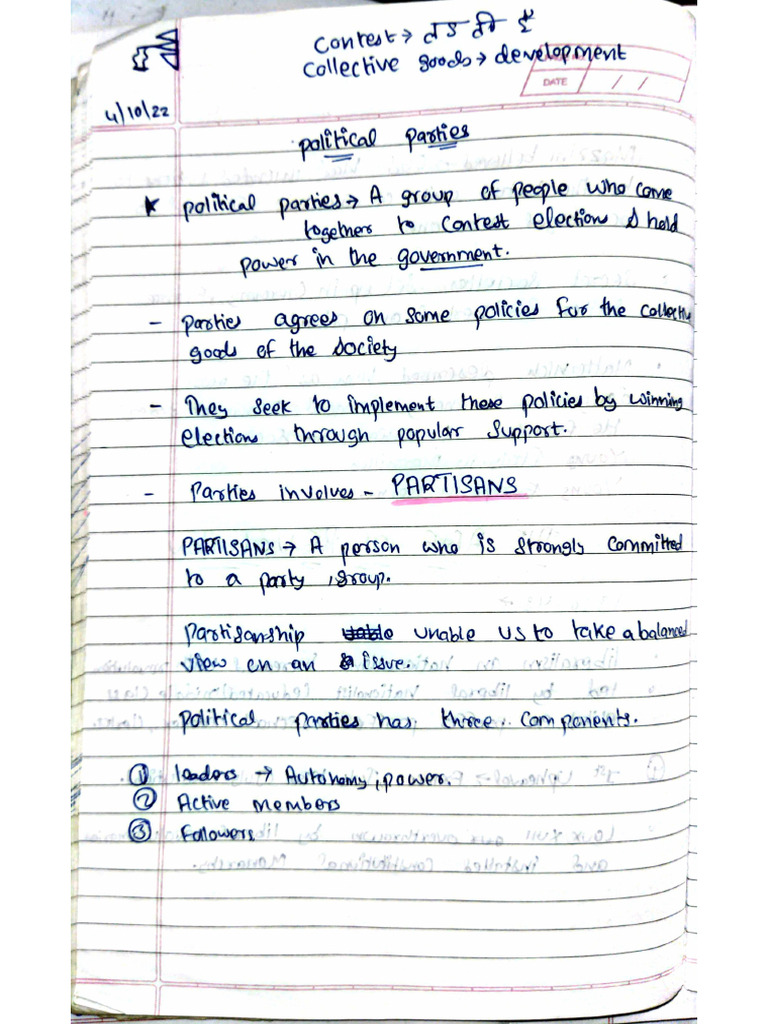 Contest → लड़ती है
Collective goods → development
DATE / /
4/10/22
political parties
* political parties → A group of people who come
together to contest election & hold
power in the government.
- parties agrees on some policies for the collective
goods of the society
- They seek to implement these policies by winning
election through popular support.
- Parties involves - PARTISANS
PARTISANS → A person who is strongly committed
to a party, group.
Partisanship unable us to take a balanced
view on an issue.
political parties has three components.
① leaders → Autonomy, power.
② Active members
③ Followers